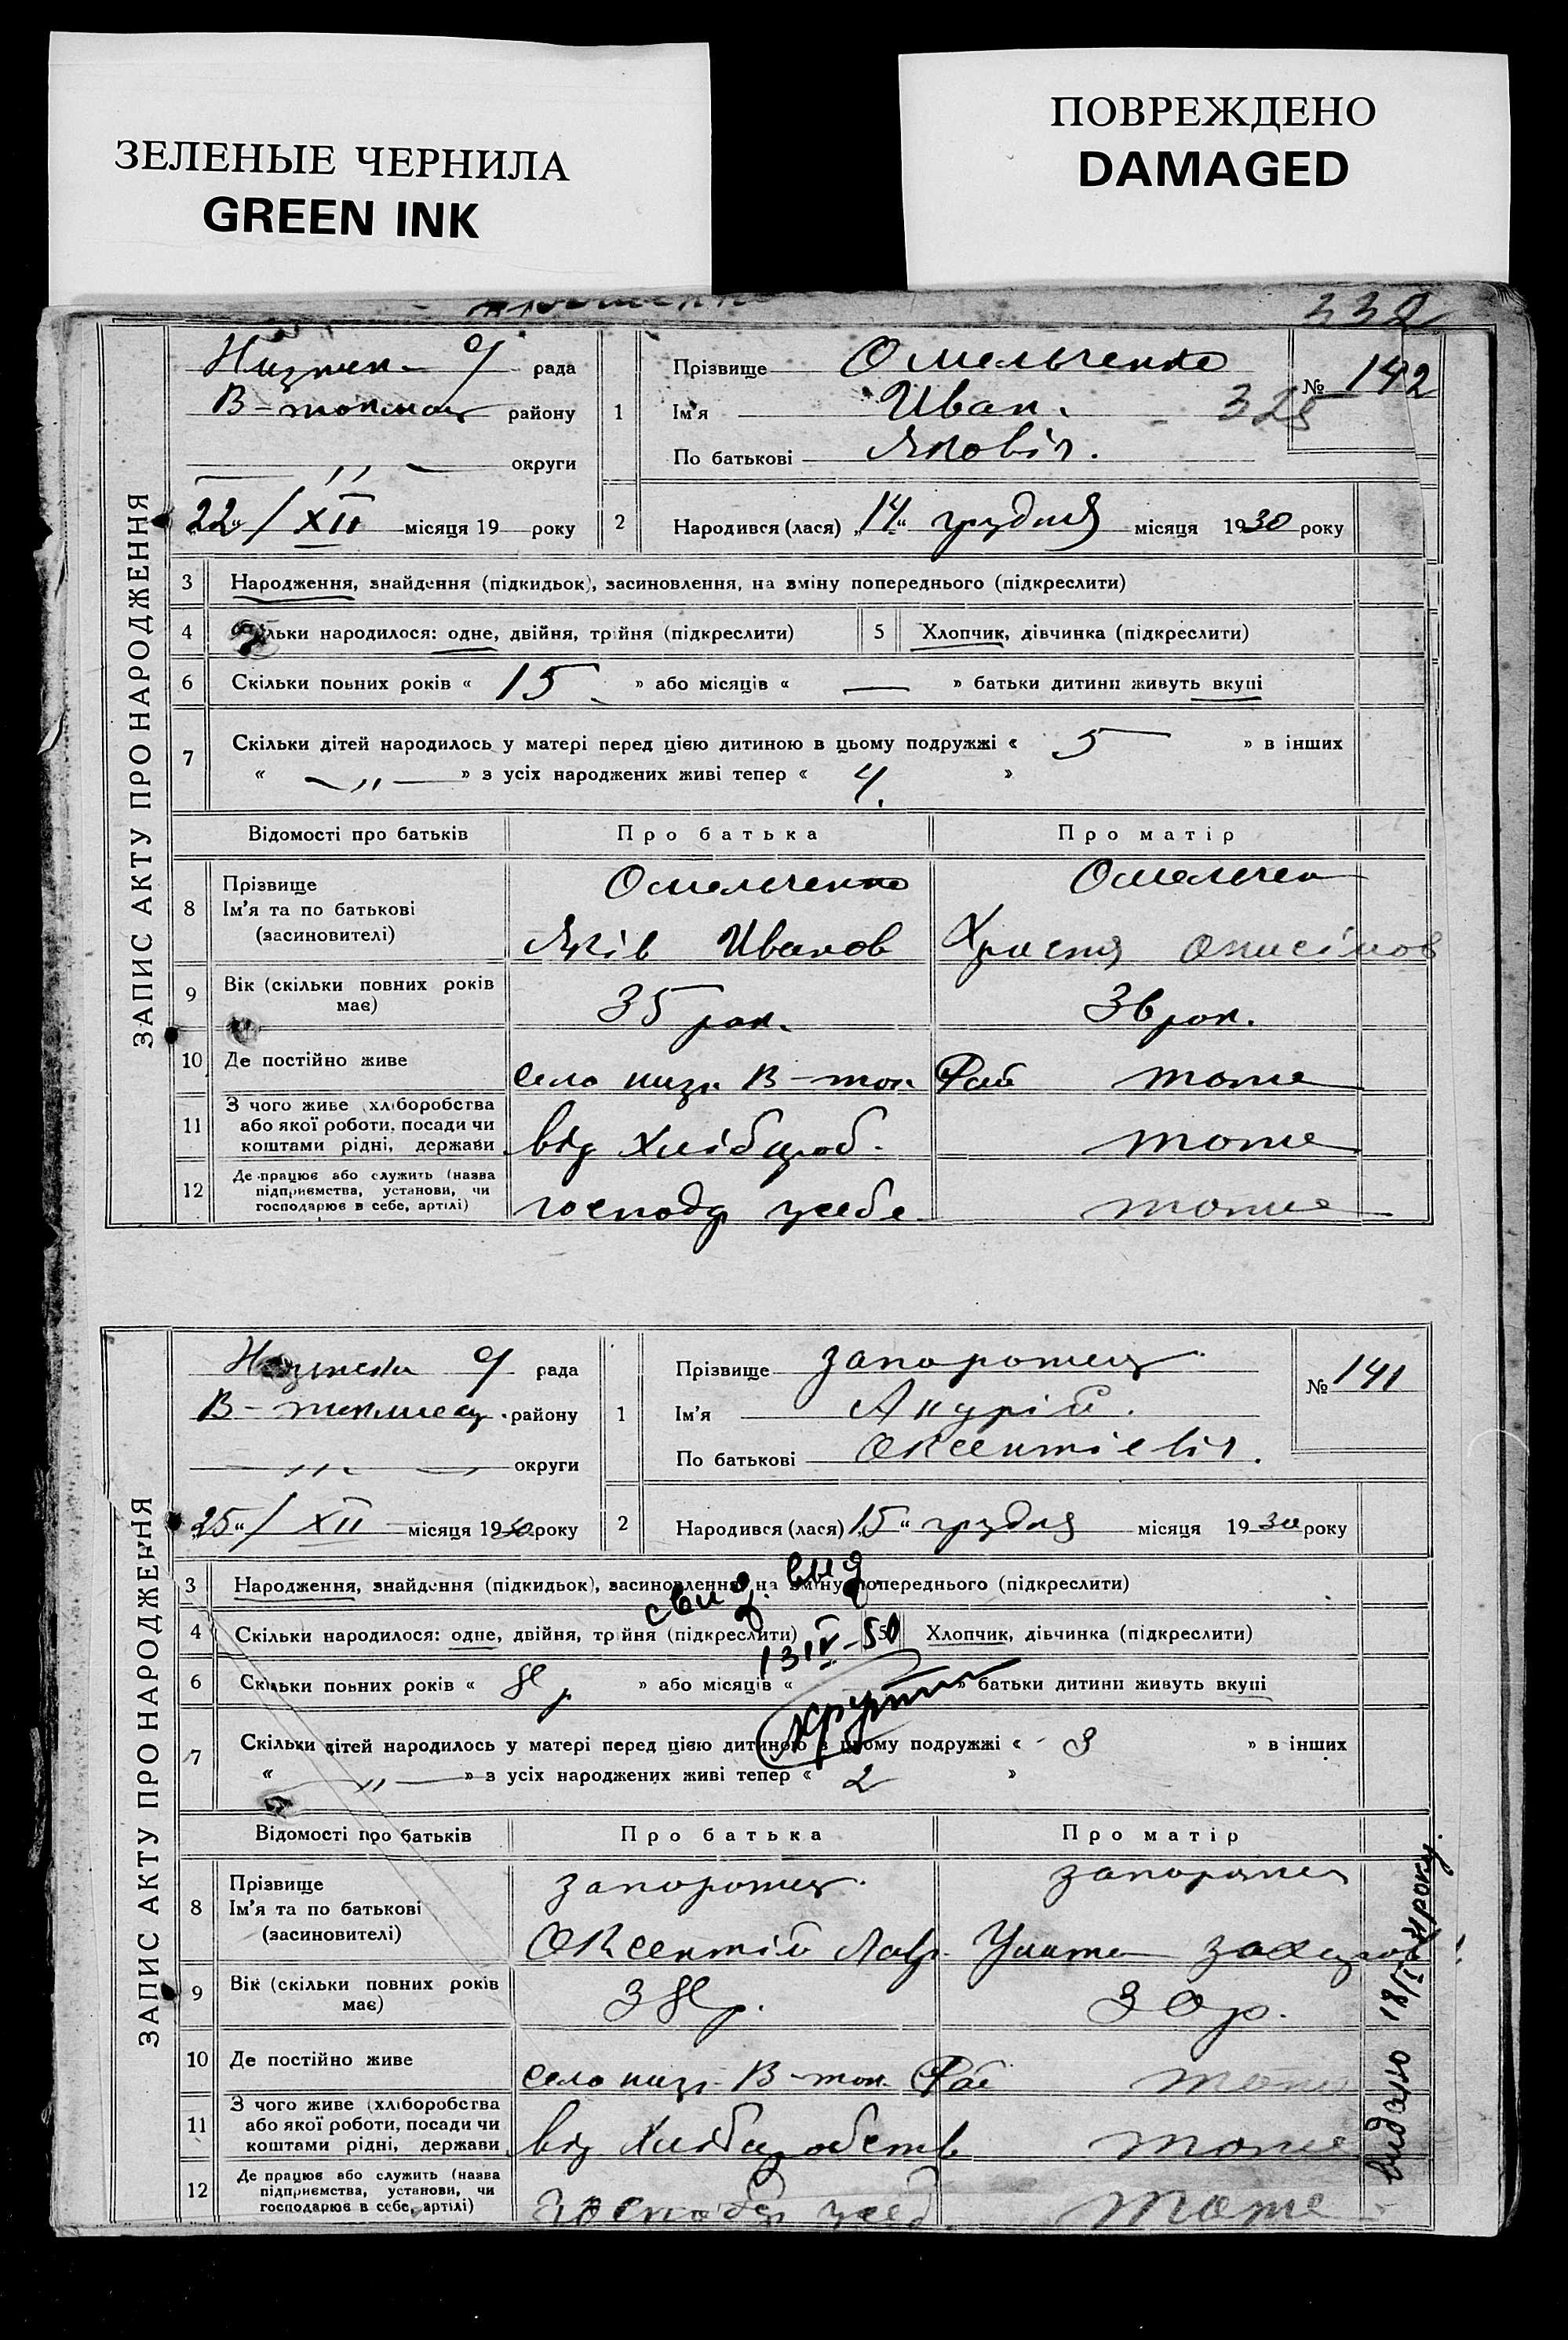 ЗЕЛЕНЫЕ ЧЕРНИЛА
GREEN INK
ПОВРЕЖДЕНО
DAMAGED
332
ЗАПИС АКТУ ПРО НАРОДЖЕННЯ
рада
В- район
округи
22 / XII місяця 19 року
1
Прізвище Омельченко
Ім'я Иван.
По батькові Яковіч.
№ 142
325
2
Народився (лася) „14“ грудня місяця 1930 року
3 Народження, знайдення (підкидьок), засиновлення, на зміну попереднього (підкреслити)
4 Скільки народилося: одне, двійня, трійня (підкреслити) 5 Хлопчик, дівчинка (підкреслити)
6 Скільки повних років « 15 » або місяців « — » батьки дитини живуть вкупі
7 Скільки дітей народилось у матері перед цією дитиною в цьому подружжі « 5 » в інших
« —„— » з усіх народжених живі тепер « 4. »
Відомості про батьків Про батька Про матір
8 Прізвище Омельченко Омельчен
Ім'я та по батькові
(засиновителі) Яків Иванов Христя Онисімов
9 Вік (скільки повних років
має) 35 рок. 36 рок.
10 Де постійно живе село низ. В-ток. Рай тоже
11 З чого живе (хліборобства
або якої роботи, посади чи
коштами рідні, держави від хлібороб. тоже
12 Де працює або служить (назва
підприємства, установи, чи
господарює в себе, артілі) господ усебе тоже
ЗАПИС АКТУ ПРО НАРОДЖЕННЯ
рада
В- району
округи
25 / XII місяця 1930 року
1
Прізвище Запорожец
Ім'я
По батькові Оксентіевіч.
№ 141
2
Народився (лася) „15“ грудня місяця 1930 року
3 Народження, знайдення (підкидьок), засиновлення, на зміну попереднього (підкреслити)
свид. выд.
4 Скільки народилося: одне, двійня, трійня (підкреслити) 5 Хлопчик, дівчинка (підкреслити)
13 IV-50
6 Скільки повних років « 8 р » або місяців « » батьки дитини живуть вкупі
7 Скільки дітей народилось у матері перед цією дитиною в цьому подружжі « 3 » в інших
« —„— » з усіх народжених живі тепер « 2 »
Відомості про батьків Про батька Про матір
8 Прізвище Запорожец Запорожец
Ім'я та по батькові
(засиновителі) Оксентій Лавр. Улита Захаров
9 Вік (скільки повних років
має) 38 р. 30 р.
10 Де постійно живе село низ. В-ток. Рай тоже
11 З чого живе (хліборобства
або якої роботи, посади чи
коштами рідні, держави від хліборобств тоже
12 Де працює або служить (назва
підприємства, установи, чи
господарює в себе, артілі) господ усеб. тоже
видано 18/I року.